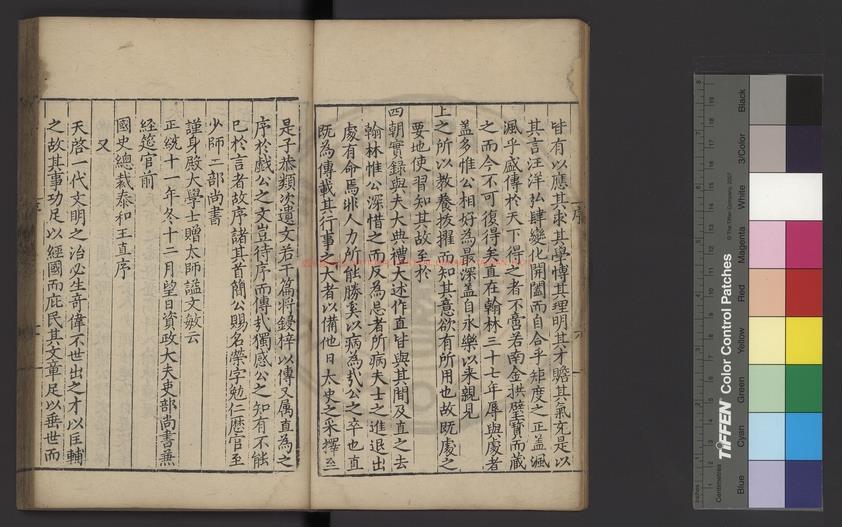 皆有以應其求其學博其理明其才贍其氣充是以
其言汪洋弘肆變化開闔而自合乎矩度之正盖渢
渢乎盛傳於天下得之者不啻若南金拱璧寳而蔵
之而今不可復得矣直在翰林三十七年辱與處者
盖多惟公相好為最深盖自永樂以来親見
上之所以教養拔擢而知其意欲有所用也故既處之
要地使習知其故至於
四朝實録與夫大典禮大述作直皆與其間及直之去
翰林惟公深惜之而反為忌者所病夫士之進退出
處有命焉非人力所能勝奚以病為哉公之卒也直
既為傳載其行事之大者以備他日太史之采擇至
是子㳟類次遺文若干篇将鋟梓以傳又属直為之
序於戲公之文豈待序而傳哉獨感公之知有不能
已於言者故序諸其首簡公賜名榮字勉仁歴官至
少師二部尚書
謹身殿大學士贈太師謚文敏云
正統十一年冬十二月望日資政大夫吏部尚書兼
經筵官前
國史總裁泰和王直序
又
天啓一代文明之治必生竒偉不世出之才以匡輔
之故其事功足以經國而庇民其文章足以垂世而
Tiffen Color Control Patches
© The Tiffen Company, 2007
Blue
Cyan
Green
Yellow
Red
Magenta
White
3/Color
Black
Centimetres
Inches